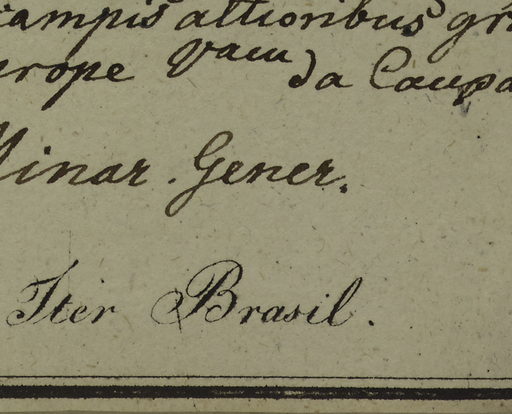 campis altioribus gr
prope Vacu da Caupa
Minar. Gener.
Iter Brasil.